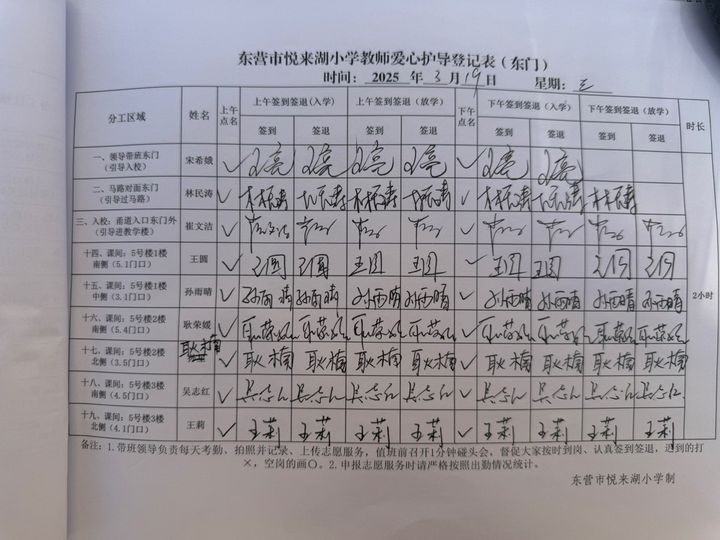 东营市悦来湖小学教师爱心护导登记表（东门）
时间： 2025 年 3 月 19 日 星期：三
分工区域 姓名 上午点名 上午签到签退（入学） 上午签到签退（放学） 下午点名 下午签到签退（入学） 下午签到签退（放学） 时长
签到 签退 签到 签退 签到 签退 签到 签退
一、领导带班东门
（引导入校） 宋希娥 ✓ ✓
二、马路对面东门
（引导过马路） 林民涛 ✓ 林民涛 林民涛 林民涛 林民涛 ✓ 林民涛 林民涛 林民涛
三、入校：甬道入口东门外
（引导进教学楼） 崔文洁 ✓ 崔文洁 ✓
十四、课间：5号楼1楼
南侧（5.1门口） 王圆 ✓ 王圆 王圆 王圆 王圆 ✓ 王圆 王圆 王圆 王圆
十五、课间：5号楼1楼
中侧（3.1门口） 孙雨晴 ✓ 孙雨晴 孙雨晴 孙雨晴 孙雨晴 ✓ 孙雨晴 孙雨晴 孙雨晴 孙雨晴
2小时
十六、课间：5号楼2楼
南侧（5.4门口） 耿荣媛 ✓ 耿荣媛 耿荣媛 耿荣媛 耿荣媛 ✓ 耿荣媛 耿荣媛 耿荣媛 耿荣媛
十七、课间：5号楼2楼
北侧（3.5门口） 耿楠 ✓ 耿楠 耿楠 耿楠 耿楠 ✓ 耿楠 耿楠 耿楠 耿楠
十八、课间：5号楼3楼
南侧（4.5门口） 吴志红 ✓ 吴志红 吴志红 吴志红 吴志红 ✓ 吴志红 吴志红 吴志红 吴志红
十九、课间：5号楼3楼
北侧（4.1门口） 王莉 ✓ 王莉 王莉 王莉 王莉 ✓ 王莉 王莉 王莉 王莉
备注：1.带班领导负责每天考勤、拍照并记录、上传志愿服务，值班前召开1分钟碰头会，督促大家按时到岗、认真签到签退，迟到的打
×，空岗的画〇。2.申报志愿服务时请严格按照出勤情况统计。
东营市悦来湖小学制